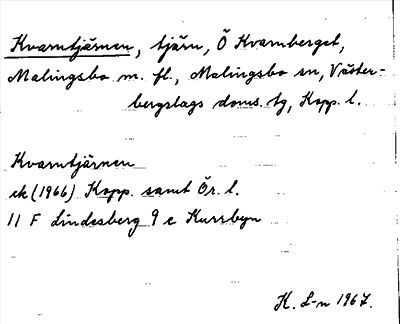 Kvarntjärnen, tjärn, Ö Kvarnberget,
Malingsbo m. fl., Malingsbo sn, Väster-
bergslags doms. tg, Kopp. l.
Kvarntjärnen
ek (1966) Kopp. samt Ör. l.
11 F Lindesberg 9 c Kursbyn
K. L-n 1967.